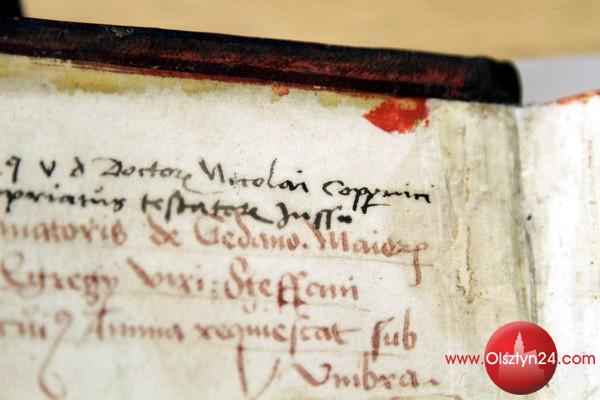 q v d Doctore Nicolai Coppernici
priatus testatore Jussu
matoris de Gedano. Maiore
Egregy viri: Steffani
Anima requiescat sub
Vmbra
www.Olsztyn24.com